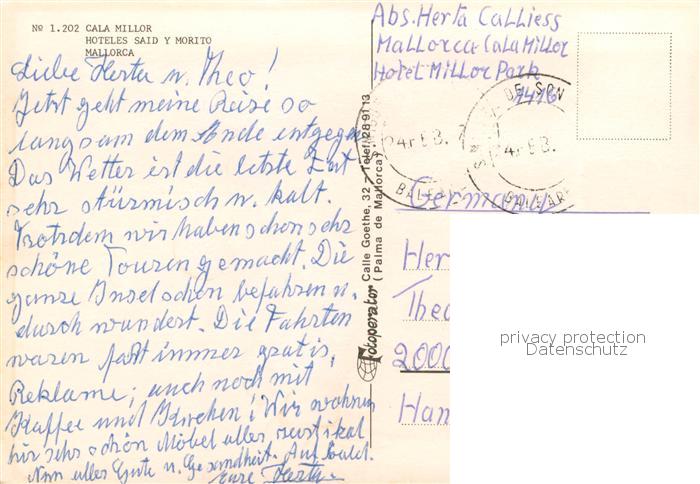 Nº 1.202 CALA MILLOR
HOTELES SAID Y MORITO
MALLORCA
Liebe Herta u. Theo!
Jetzt geht meine Reise so
langsam dem Ende entgegen
Das Wetter ist die letzte Zeit
sehr stürmisch u. kalt.
Trotzdem wir haben schon sehr
schöne Touren gemacht. Die
ganze Insel schon befahren u.
durch wandert. Die Fahrten
waren fast immer gratis,
Reklame; auch noch mit
Kaffee und Kuchen! Wir wohnen
hir sehr schön Möbel alles rustikal
Nun alles Gute u. Gesundheit. Auf bald.
Eure Herta
Fotoperator Calle Goethe, 32 - Telef. 28 91 13
(Palma de Mallorca)
Abs. Herta Calliess
Mallorca Cala Millor
Hotel Millor Park
1416
DE SON
BALEARES
BALEARE
Germany
Her
Theo
2000
Ham
privacy protection
Datenschutz